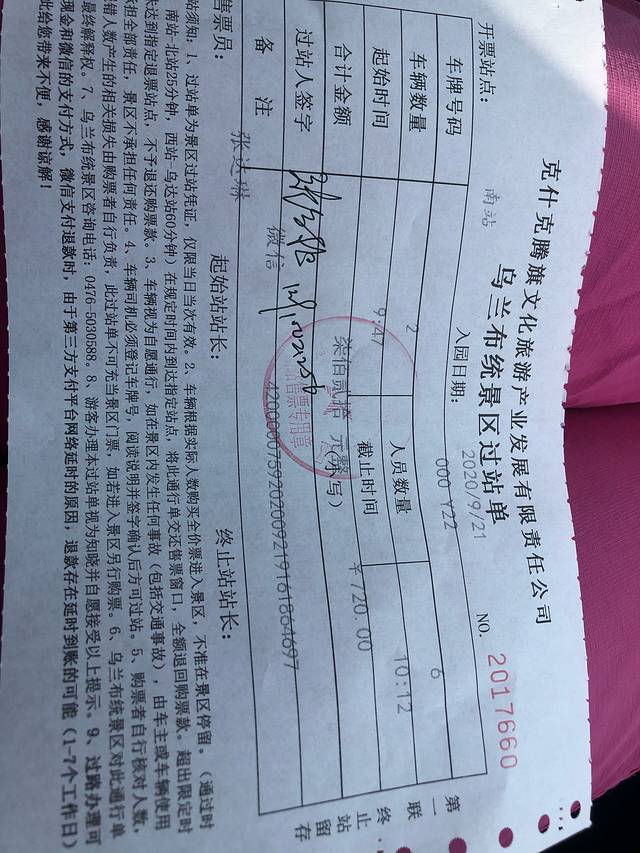 克什克腾旗文化旅游产业发展有限责任公司
乌兰布统景区过站单
NO. 2017660
开票站点: 南站 入园日期: 2020/9/21
车牌号码 000 Y22
车辆数量 2 人员数量 6
起始时间 9:47 截止时间 10:12
合计金额 柒佰贰拾 元整(大写) ¥720.00
过站人签字
备注 微信 4200000759202009219161864697
第一联 终止站留存
售票专用章
售票员: 张达琳 起始站站长: 终止站站长:
站须知: 1、过站单为景区过站凭证, 仅限当日当次有效。2、车辆根据实际人数购买全价票进入景区, 不准在景区停留。(通过时
南站-北站25分钟, 西站-乌达站60分钟) 在规定时间内到达指定站点, 将此通行单交还售票窗口, 全额退回购票款。超出限定时
未达到指定退票站点, 不予退还购票款。3、车辆视为自愿通行, 如在景区内发生任何事故(包括交通事故), 由车主或车辆使用
承担全部责任, 景区不承担任何责任。4、车辆司机必须登记车牌号, 阅读说明并签字确认后方可过站。5、购票者自行核对人数,
错人数产生的相关损失由购票者自行负责, 此过站单不可充当景区门票, 如若进入景区另行购票。6、乌兰布统景区对此通行单
最终解释权。7、乌兰布统景区咨询电话: 0476-5030588。8、游客办理本过站单视为知晓并自愿接受以上提示。9、过路办理可
现金和微信的支付方式, 微信支付退款时, 由于第三方支付平台网络延时的原因, 退款存在延时到账的可能(1-7个工作日)
此给您带来不便, 感谢谅解!